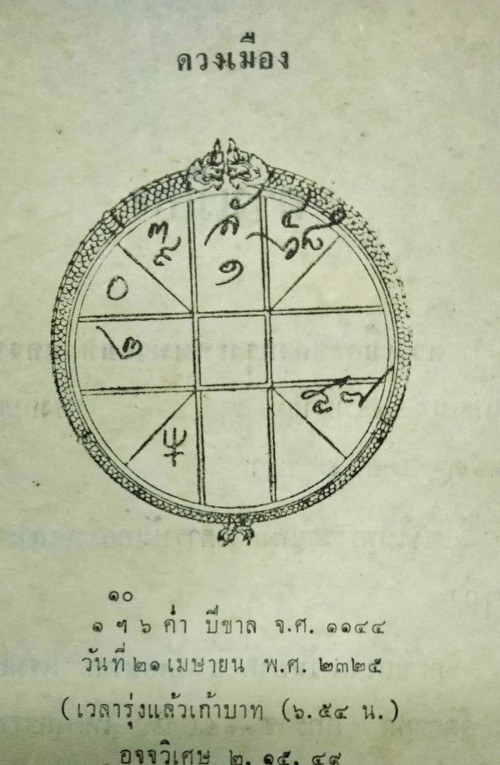 ดวงเมือง
ลั
๑
๐
๒
๑๐
๑ ฯ ๖ ค่ำ ปีขาล จ.ศ. ๑๑๔๔
วันที่ ๒๑ เมษายน พ.ศ. ๒๓๒๕
(เวลารุ่งแล้วเก้าบาท (๖.๕๔ น.)
อจจวิเศษ ๒, ๑๕, ๔๙